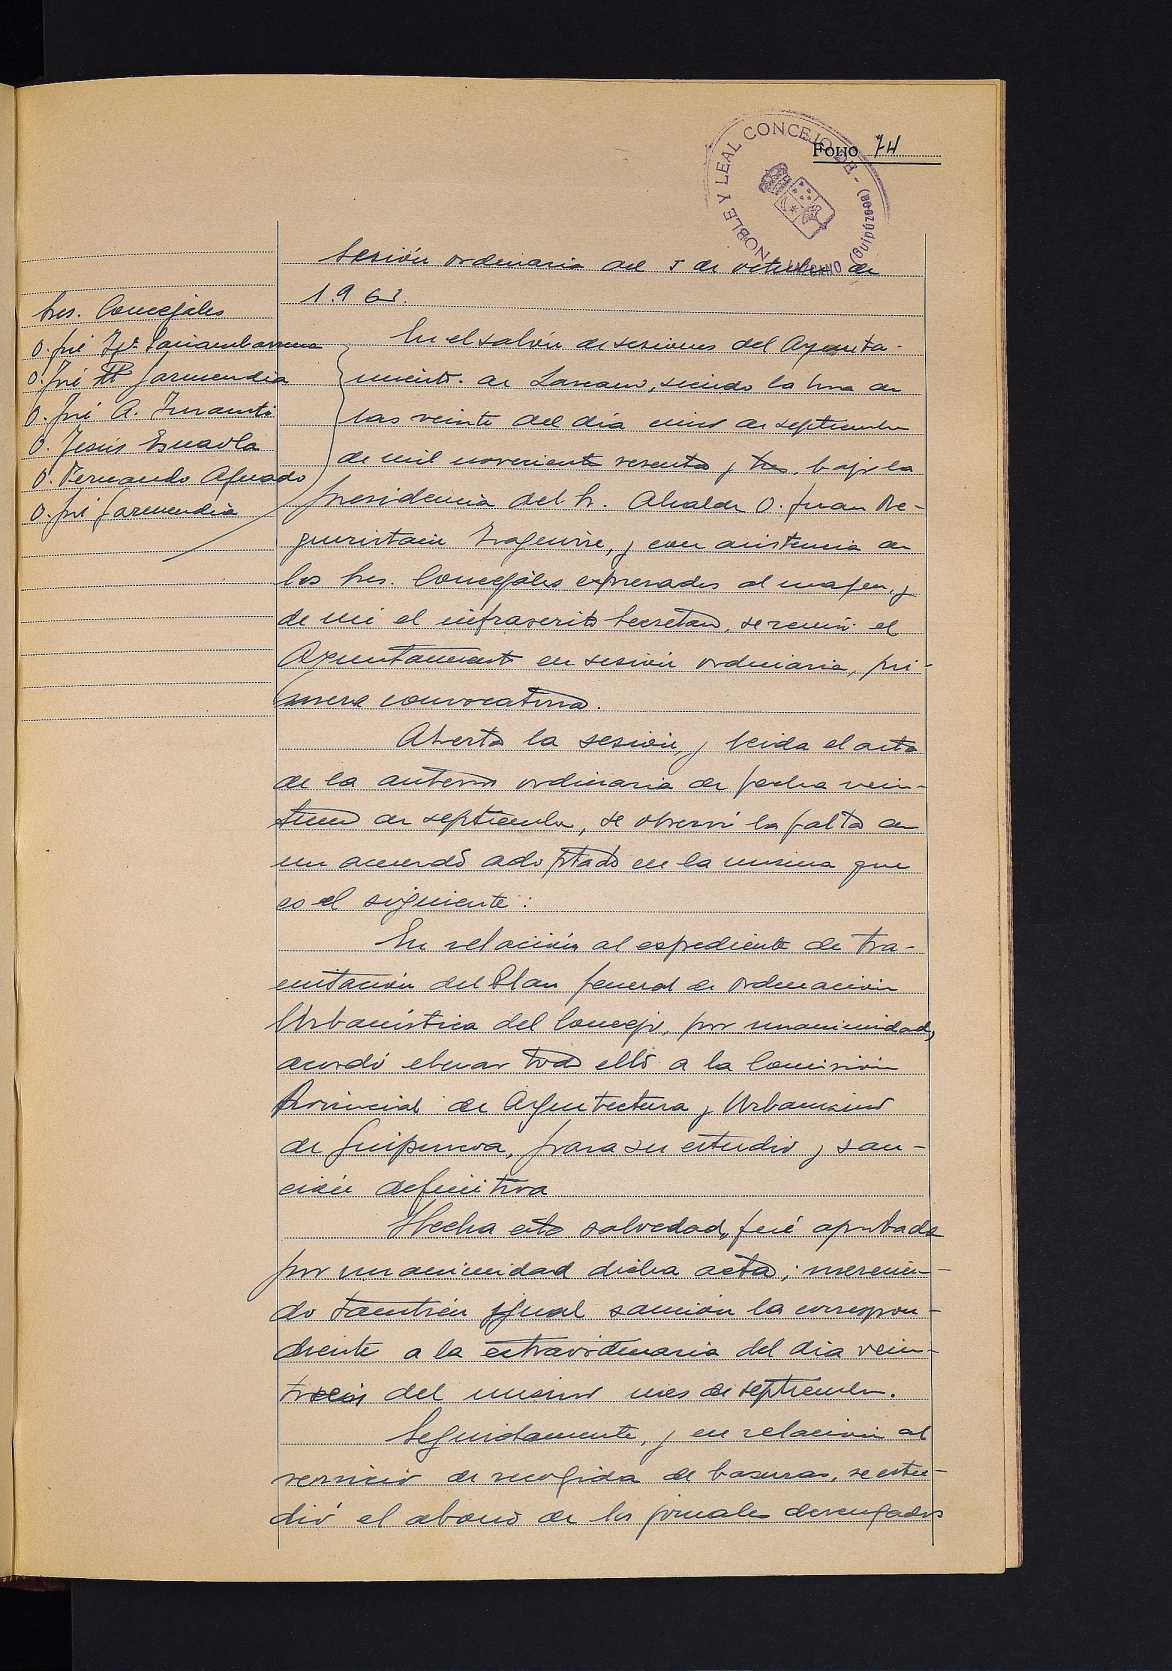 Folio 74
NOBLE Y LEAL CONCEJO DE LAZCANO (Guipúzcoa)
Sesión ordinaria del 5 de octubre de
1.963.
Sres. Concejales
D. José
D. José Mª Garmendia
D. José A. Insausti
D. Jesús Esnaola
D. Fernando Aguado
D. José Garmendia
En el salón de sesiones del Ayunta-
miento de Lazcano, siendo la hora de
las veinte del día cinco de septiembre
de mil novecientos sesenta y tres, bajo la
presidencia del Sr. Alcalde D. Juan Be-
guiristain Izaguirre, y con asistencia de
los Sres. Concejales expresados al margen, y
de mi el infrascrito Secretario, se reunió el
Ayuntamiento en sesión ordinaria, pri-
mera convocatoria.
Abierta la sesión, y leida el acta
de la anterior ordinaria de fecha vein-
tiuno de septiembre, se observó la falta de
un acuerdo adoptado en la misma que
es el siguiente:
En relación al expediente de tra-
mitación del Plan general de Ordenación
Urbanística del Concejo, por unanimidad,
acordó elevar todo ello a la Comisión
Provincial de Arquitectura y Urbanismo
de Guipuzcoa, para su estudio y san-
ción definitiva
Hecha esta salvedad, fué aprobada
por unanimidad dicha acta; merecien-
do también igual sanción la correspon-
diente a la extraordinaria del dia vein-
del mismo mes de septiembre.
Seguidamente, y en relación al
servicio de recogida de basuras, se estu-
dió el abono de los jornales devengados